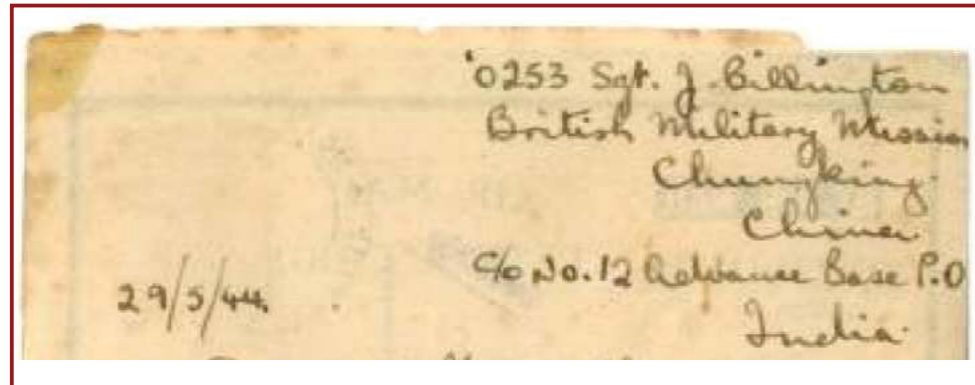 '0253 Sgt. J. Billington
British Military Mission
Chungking.
China.
C/o No. 12 Advance Base P.O
29/5/44.
India.